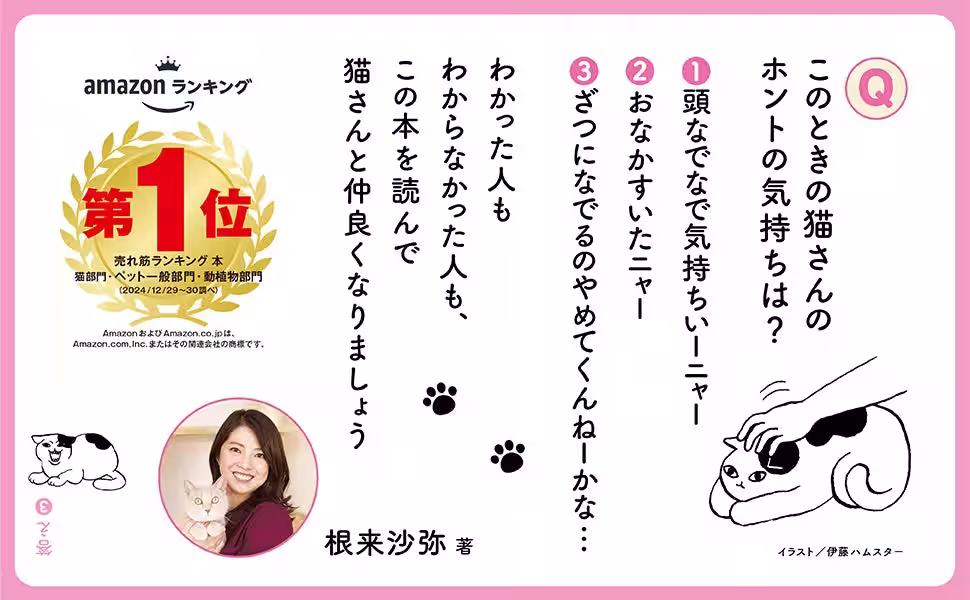 Q
このときの猫さんの
ホントの気持ちは?
1 頭なでなで気持ちいーニャー
2 おなかすいたニャー
3 ざつになでるのやめてくんねーかな…
わかった人も
わからなかった人も、
この本を読んで
猫さんと仲良くなりましょう
amazon ランキング
第1位
売れ筋ランキング 本
猫部門・ペット一般部門・動植物部門
(2024/12/29~30調べ)
AmazonおよびAmazon.co.jpは、
Amazon.com, Inc.またはその関連会社の商標です。
根来沙弥 著
イラスト/伊藤ハムスター
答え 3